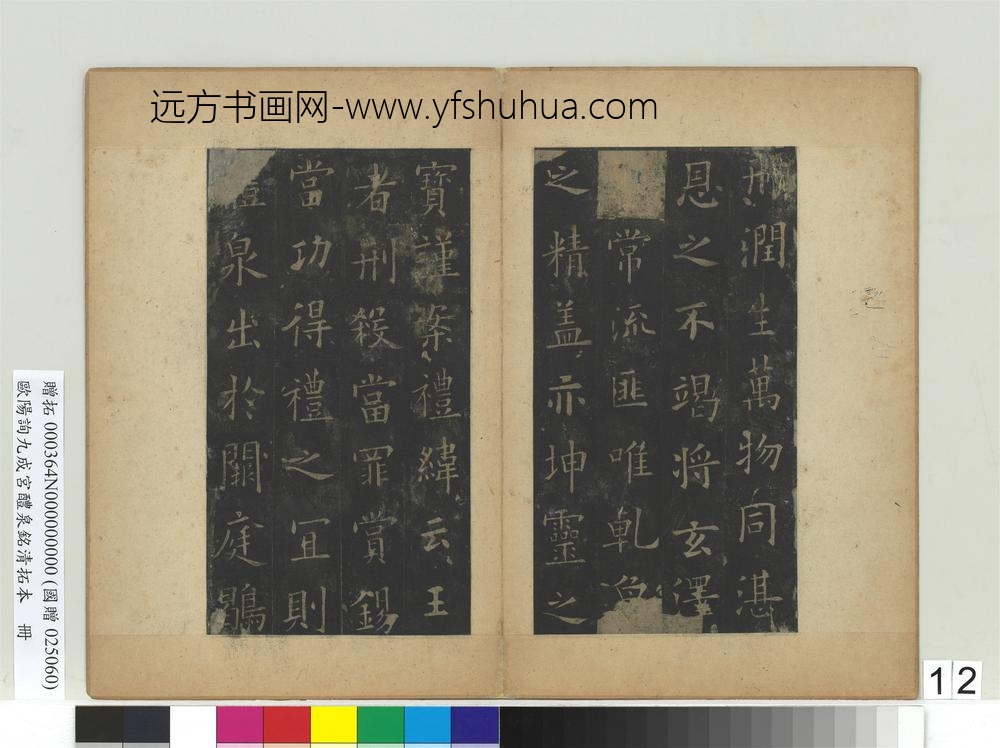 远方书画网-www.yfshuhua.com
刑潤生萬物同湛
恩之不竭將玄澤
常流匪唯乹
之精盖亦坤靈之
寶謹案禮緯云王
者刑殺當罪賞錫
當功得禮之冝則
泉出於闕庭鶡
贈拓 000364N000000000 (國贈 025060)
歐陽詢九成宮醴泉銘清拓本 冊
12